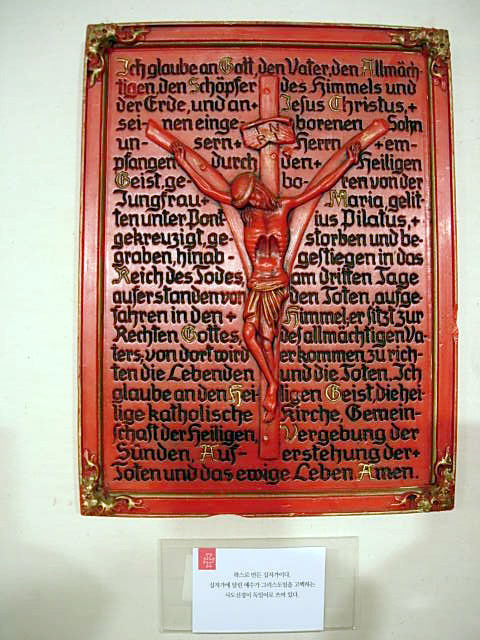 Ich glaube an Gott, den Vater, den Allmäch-
tigen, den Schöpfer des Himmels und
der Erde, und an+ Jesus Christus,+
sei- nen einge- borenen Sohn
un- sern+ INRI Herrn +em-
pfangen durch den+ Heiligen
Geist, ge- bo- ren von der
Jungfrau+ Maria gelit-
ten unter Pont- ius Pilatus,+
gekreuzigt, ge- storben und be-
graben, hinab- gestiegen in das
Reich des Todes am dritten Tage
auferstanden von den Toten, aufge-
fahren in den+ Himmel: er sitzt zur
Rechten Gottes, des allmächtigen Va-
ters, von dort wird er kommen zu rich-
ten die Lebenden und die Toten. Ich
glaube an den Hei- ligen Geist, die hei-
lige katholische Kirche, Gemein-
schaft der Heiligen, Vergebung der
Sünden, Auf- erstehung der+
Toten und das ewige Leben Amen.
왁스로 만든 십자가이다.
십자가에 달린 예수가 그리스도임을 고백하는
사도신경이 독일어로 쓰여 있다.